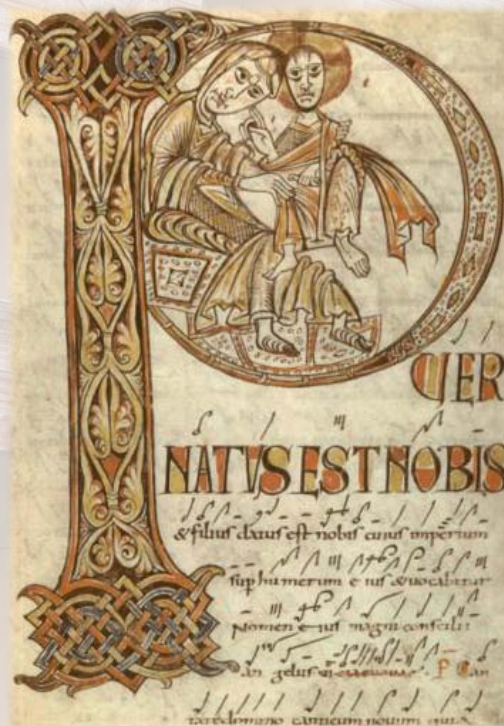 PUER
NATUS EST NOBIS
& filius datus est nobis cuius imperium
sup humerum eius & vocabitur
Nomen eius magni consilii
an gelus
tate domino canticum novum quia